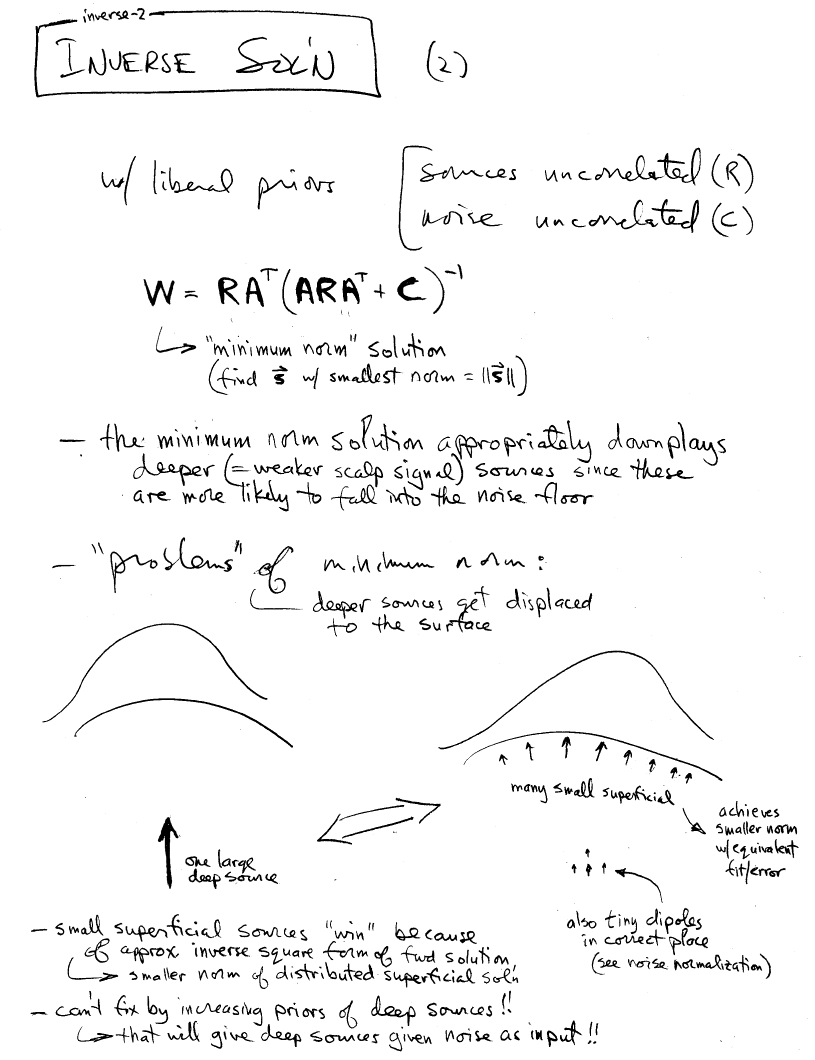 inverse-2
INVERSE SOL'N (2)
w/ liberal priors
sources uncorrelated (R)
noise uncorrelated (C)
W = RAᵀ(ARAᵀ + C)⁻¹
↳ "minimum norm" solution
(find s⃗ w/ smallest norm = ||s⃗||)
– the minimum norm solution appropriately downplays
deeper (= weaker scalp signal) sources since these
are more likely to fall into the noise floor
– "problems" of minimum norm:
deeper sources get displaced
to the surface
many small superficial
achieves
smaller norm
w/equivalent
fit/error
one large
deep source
also tiny dipoles
in correct place
(see noise normalization)
– small superficial sources "win" because
of approx inverse square form of fwd solution,
↳ smaller norm of distributed superficial sol'n
– can't fix by increasing priors of deep sources!!
↳ that will give deep sources given noise as input!!